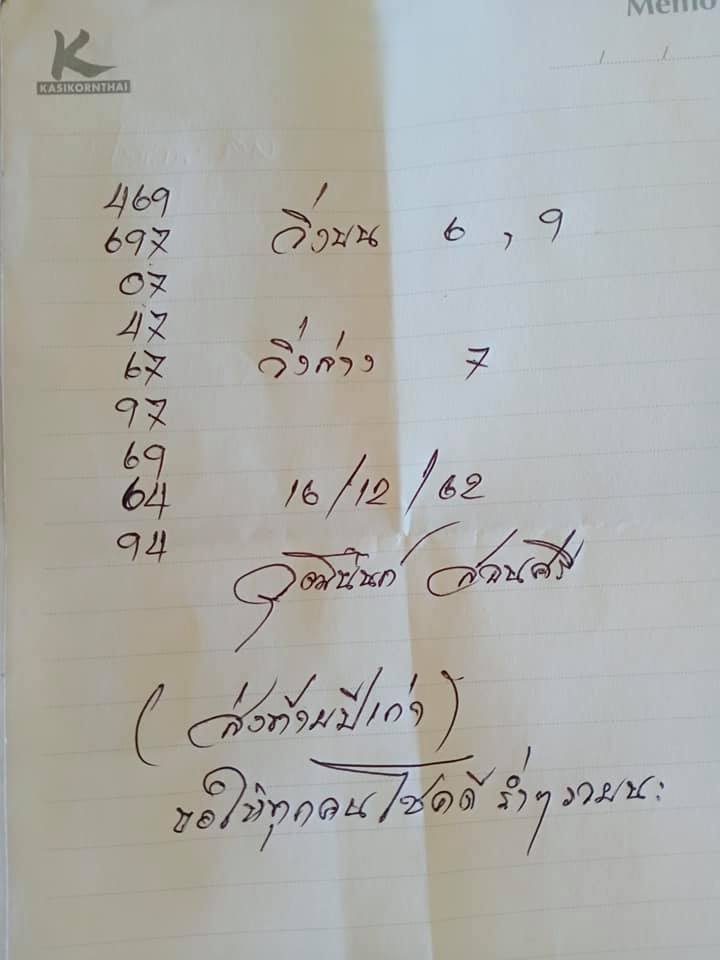 Memo
K
KASIKORNTHAI
/ /
469
697 วิ่งบน 6 , 9
07
47
67 วิ่งล่าง 7
97
69
64 16/12/62
94
วุฒินันท์ สอนศรี
(ส่งท้ายปีเก่า)
ขอให้ทุกคนโชคดี ร่ำๆรวยนะ